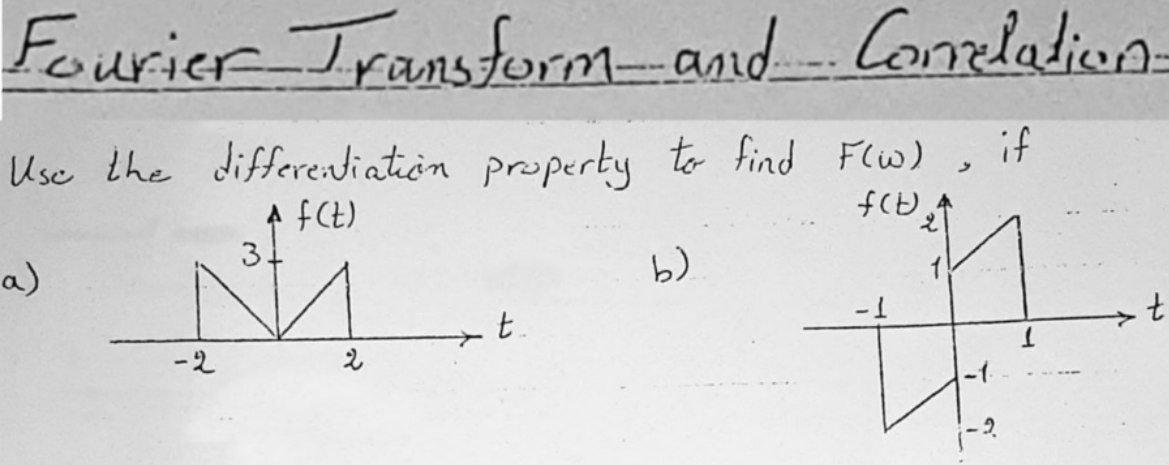 Fourier Transform and Correlation
Use the differentiation property to find F(ω), if
a)
f(t)
3
-2
2
t
b)
f(t)
2
1
-1
1
t
-1
-2